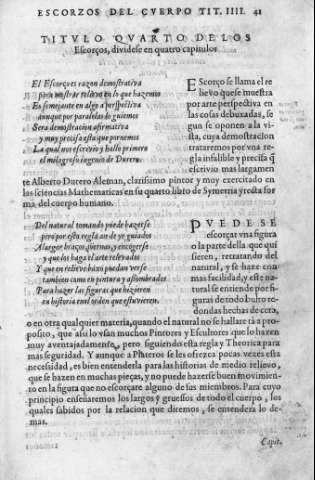 ESCORZOS DEL CVERPO TIT. IIII. 41
TITVLO QVARTO DE LOS
Escorços, dividese en quatro capitulos
El Escorço es razon demostrativa
para mostrar relievo en lo que hazemos
Es semejante en algo a perspectiva
aunque por paralelos lo guiemos
Sera demostracion afirmativa
y muy precisa esta que ponemos
La qual nos escrivio y hallo primero
el milagroso ingenio de Durero.
Escorço se llama el re
lievo que se muestra
por arte perspectiva en
las cosas debuxadas, se
gun se oponen a la vi-
sta, cuya demostracion
trataremos por vna re
gla infalible y precisa q̃
escrivio mas largamen
te Alberto Durero Aleman, clarissimo pintor y muy exercitado en
las sciencias Mathematicas en su quarto libro de Symetria y resta for
ma del cuerpo humano.
Del natural tomando puede hazerse
por esta regla an de ser guiados
Alargar braços, piernas, y encogerse
y que los haga el arte relevados
Y que en relievo baxo puedan verse
tambien como en pintura y assombrados
Para hazer las figuras que hizieren
en historia en el orden que estuvieren.
PVEDESE
escorçar vna figura
o la parte della que qui
sieren, retratando del
natural, y se haze con
mas facilidad, y este na
tural se entiende por fi-
guras de todo bulto re
dondas hechas de cera,
o en otra qualquier materia, quando el natural no se hallare tã a pro
posito, que assi lo vsan muchos Pintores y Escultores que lo hazen
muy aventajadamente, pero siguiendo esta regla y Theorica para
mas seguridad. Y aunque a Plateros se les ofrezca pocas vezes esta
necessidad, es bien entenderla para las historias de medio relievo,
que se hazen en muchas pieças, y no puede hazerse buen movimien-
to en la figura que no escorçare alguno de sus miembros. Para cuyo
principio enseñaremos los largos y gruessos de todo el cuerpo, los
quales sabidos por la relacion que diremos, se entendera lo de-
mas.
Capit.